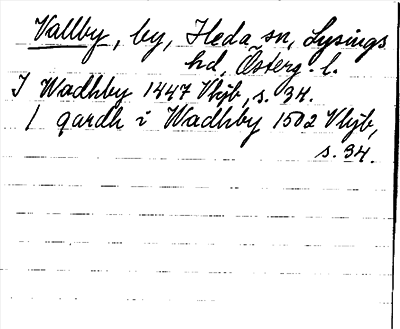 Vallby, by, Heda sn, Lysings
hd, Österg. l.
I Wadhby 1447 Vhjb, s. 34.
1 gardh i Wadhby 1502 Vhjb,
s. 34.